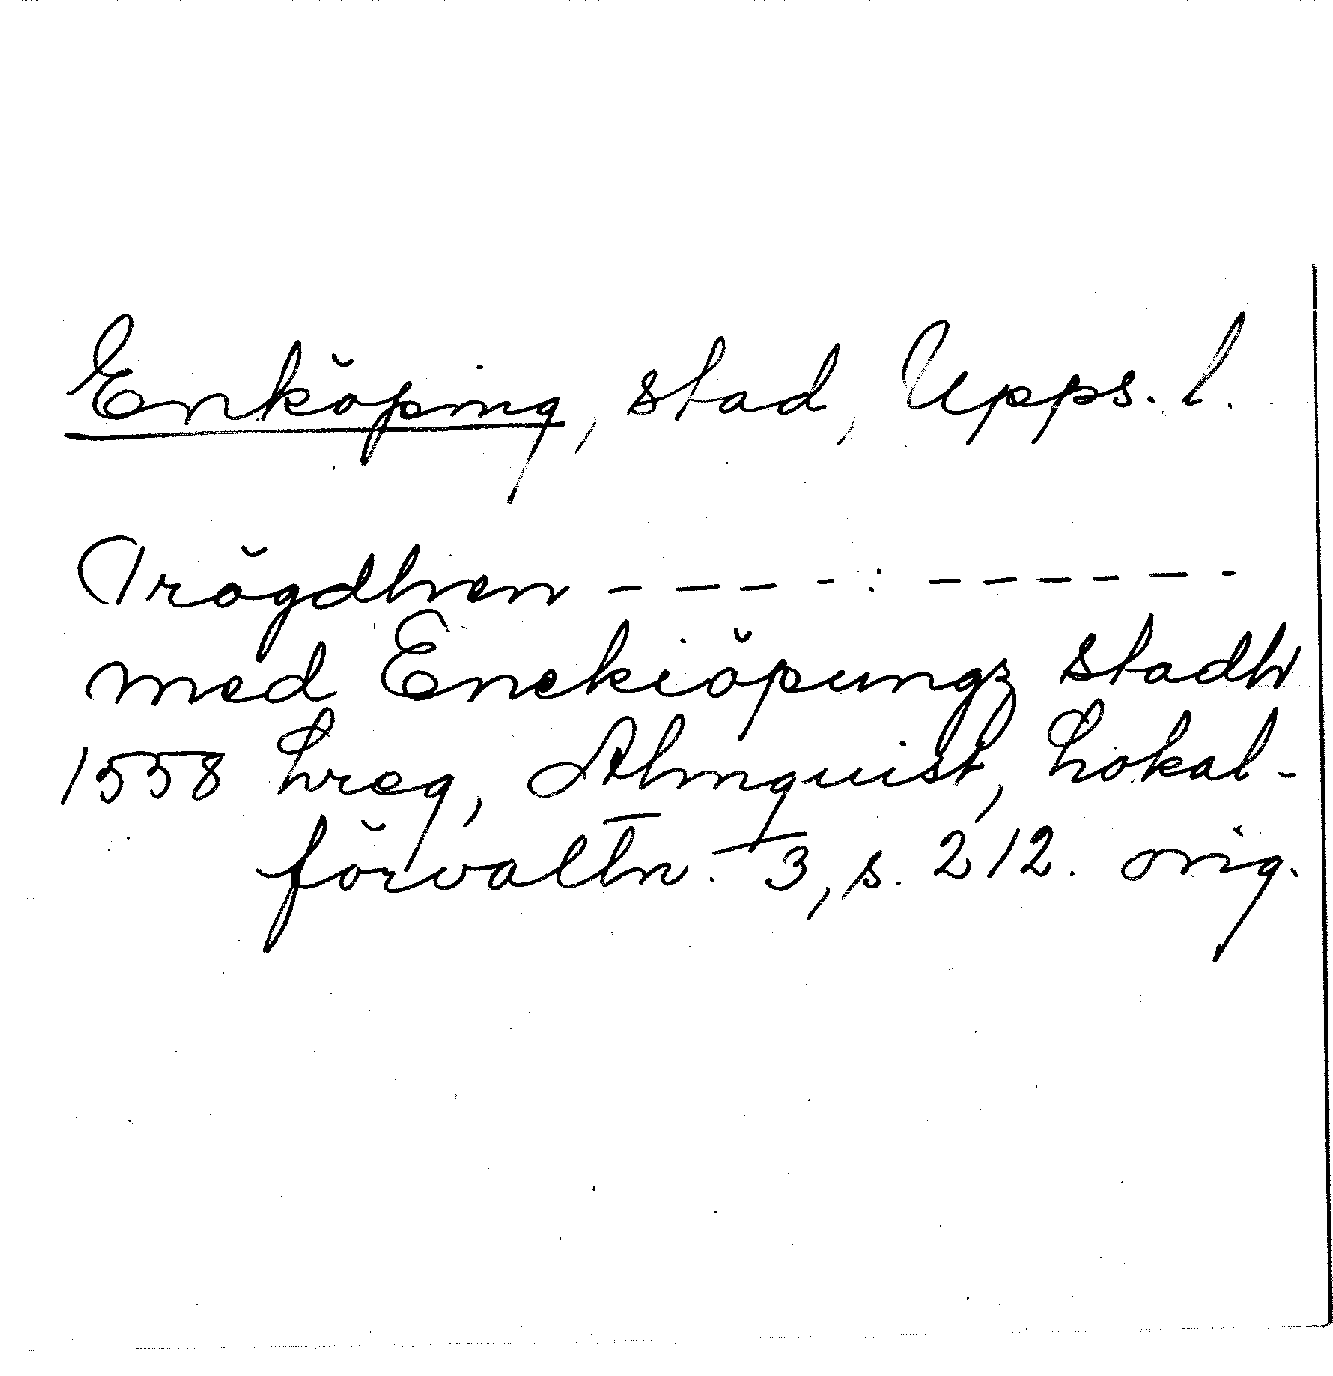 Enköping, stad, Upps. l.
Trögdhen - - - - : - - - - - -
med Enekiöpungz stadh
1558 Lreg, Almquist, Lokal-
förvaltn. 3, s. 212. orig.